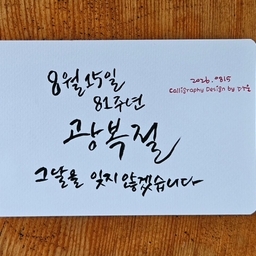 8월 15일
81주년
광복절
그날을 잊지 않겠습니다
2026.0815
Calligraphy Design by